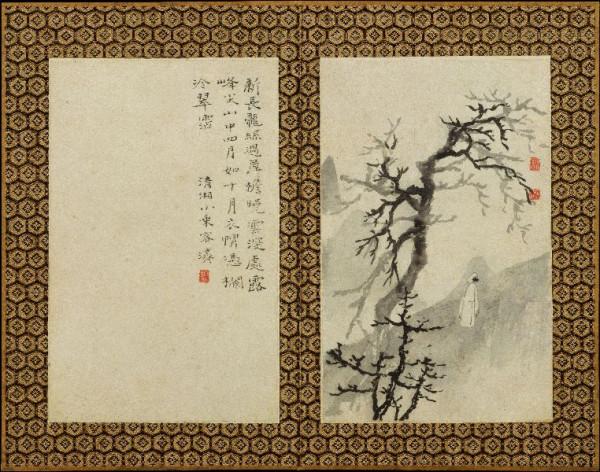 新長龍孫過屋檐曉雲深處露
峰尖山中四月如十月衣帽憑欄
冷翠霑
清湘小乘客濟